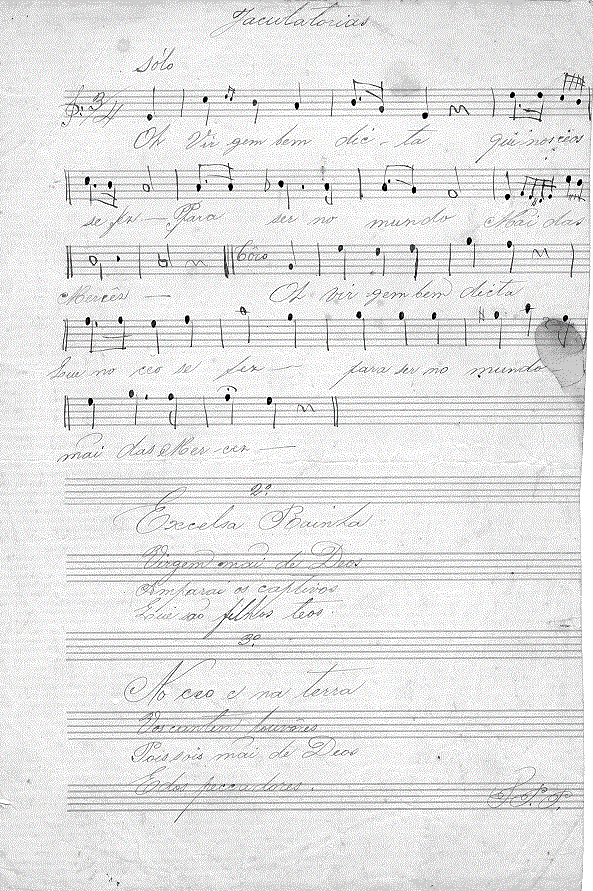 Jaculatorias
Sólo
3/4
Oh Virgem bem dic-ta que nos céus
se fez - Para ser no mundo Mai das
Côro
Mercês - Oh virgem bem dicta
Que no ceo se fez - para ser no mundo
mai das Mer-cez -
2ª
Excelsa Rainha
Virgem mai de Deos
Amparai os captivos
Que são filhos teos.
3ª
No ceo e na terra
Vos cantem louvores
Pois sois mai de Deos
E dos peccadores.